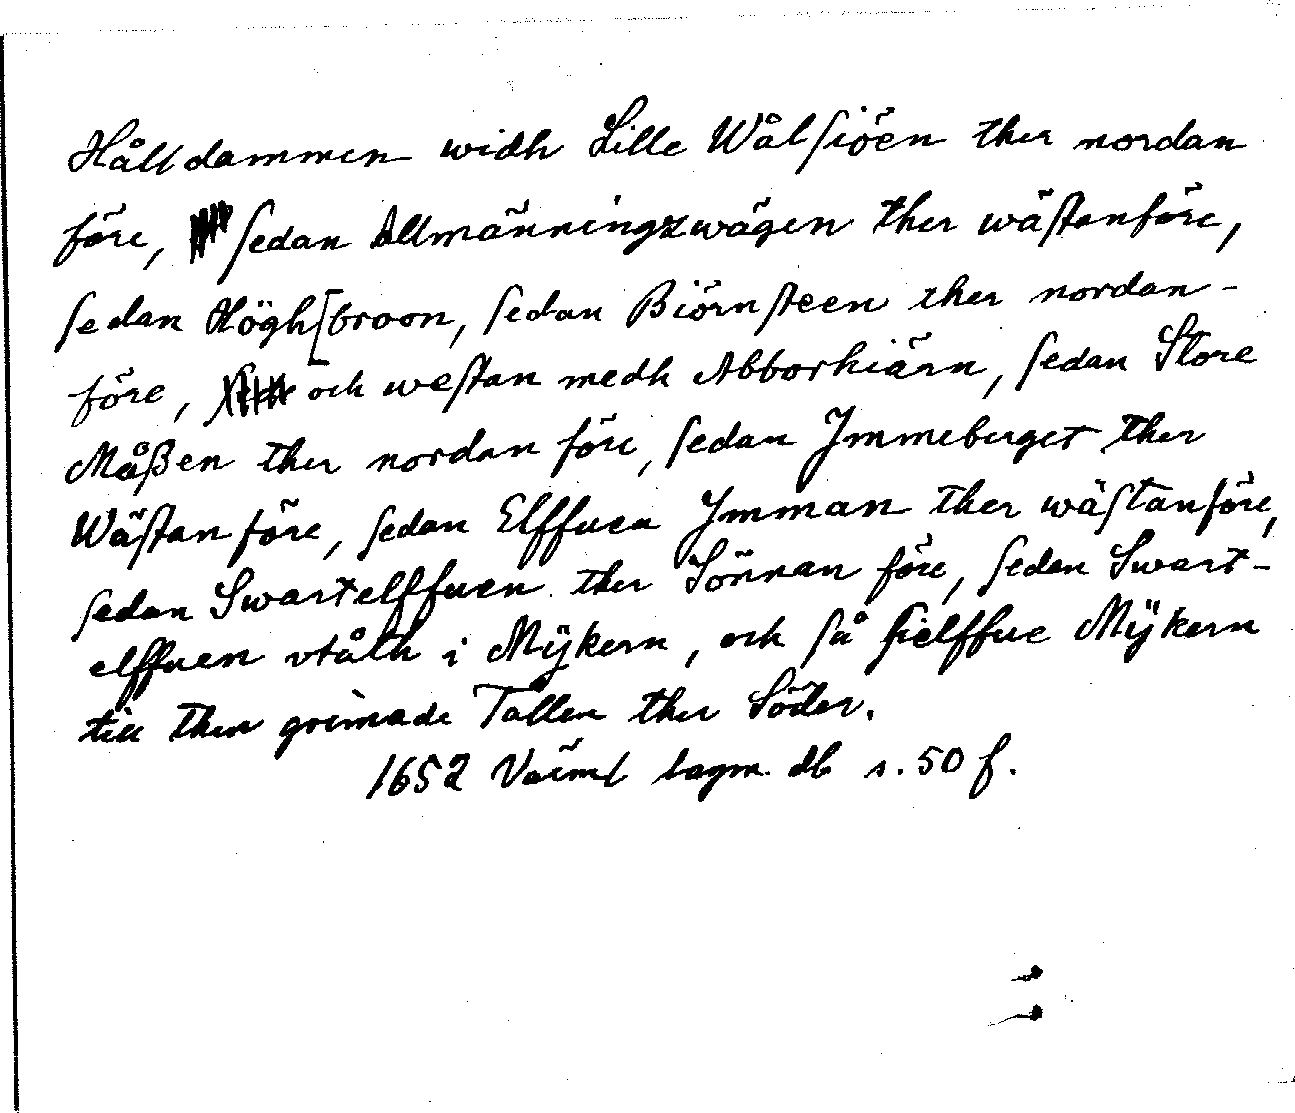 Hålldammen widh Lille Wålsiöen ther nordan
före, sedan Allmänningzwägen ther wästanföre,
sedan Högh[broon, sedan Biörnsteen ther nordan-
före, och westan medh Abborkiärn, sedan Store
Måßen ther nordan före, sedan Jmmeberget ther
Wästan före, sedan Elffuen Jmman ther wästanföre,
sedan Swartelffuen ther Sönnan före, sedan Swart-
elffuen vtålh i Mÿkern, och så sielffue Mÿkern
till then grimade Tallen ther Söder.
1652 Värml lagm. db s. 50 f.